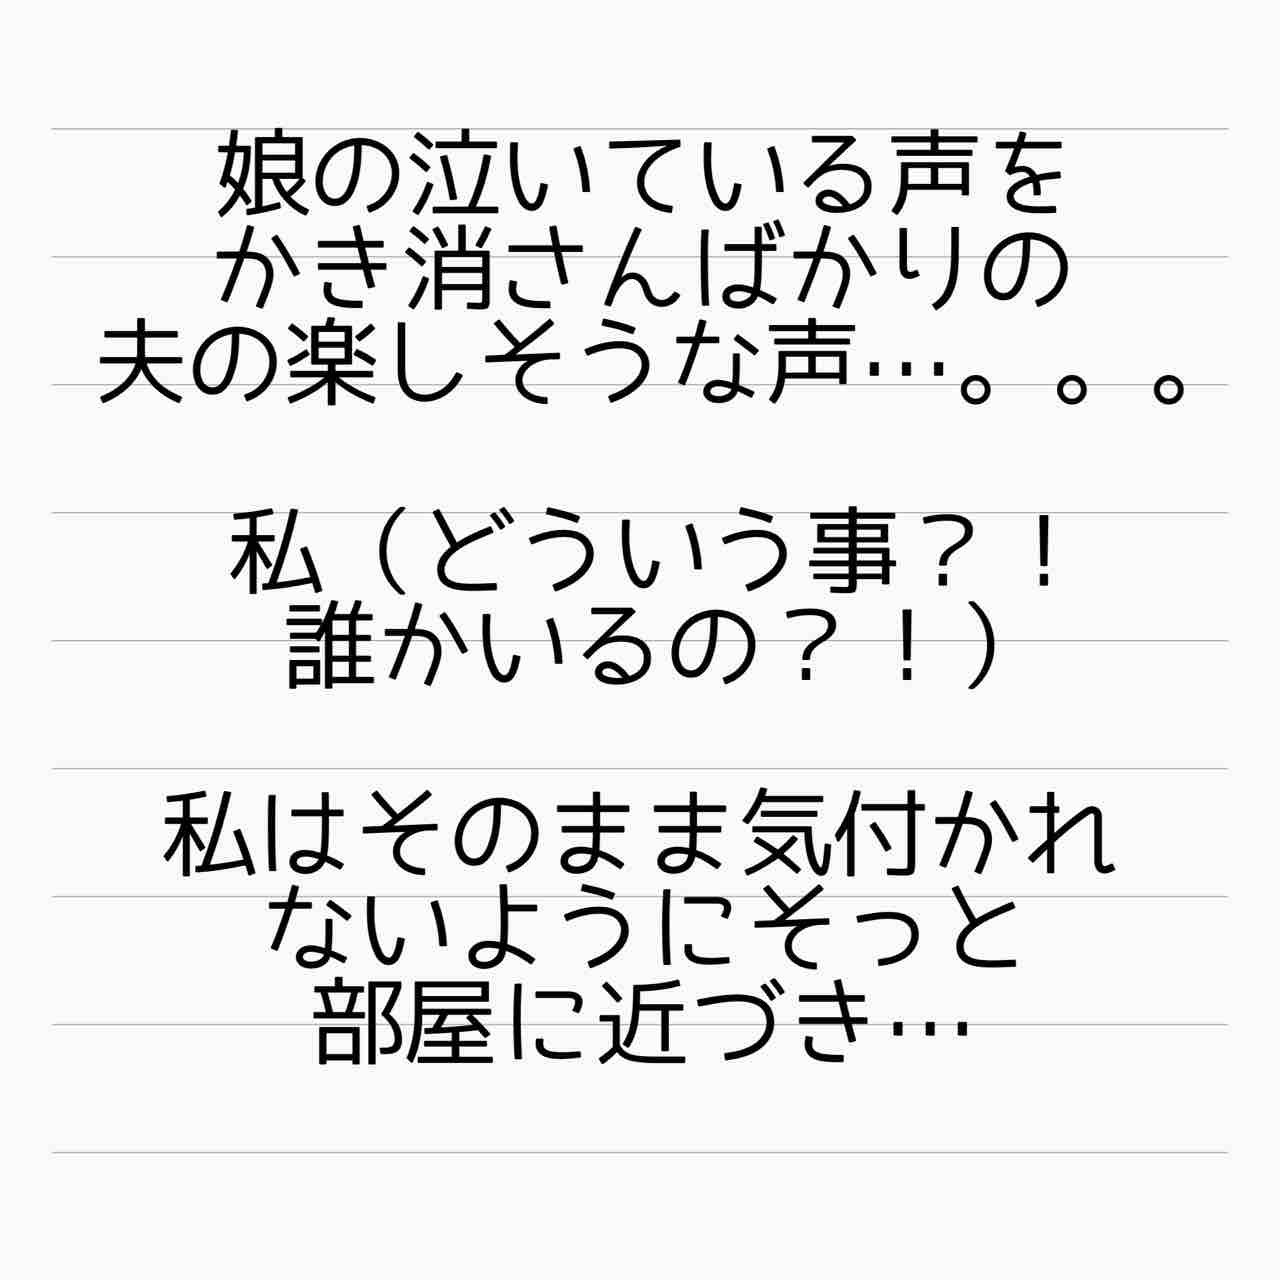 娘の泣いている声を
かき消さんばかりの
夫の楽しそうな声…。。。
私（どういう事？！
誰かいるの？！）
私はそのまま気付かれ
ないようにそっと
部屋に近づき…